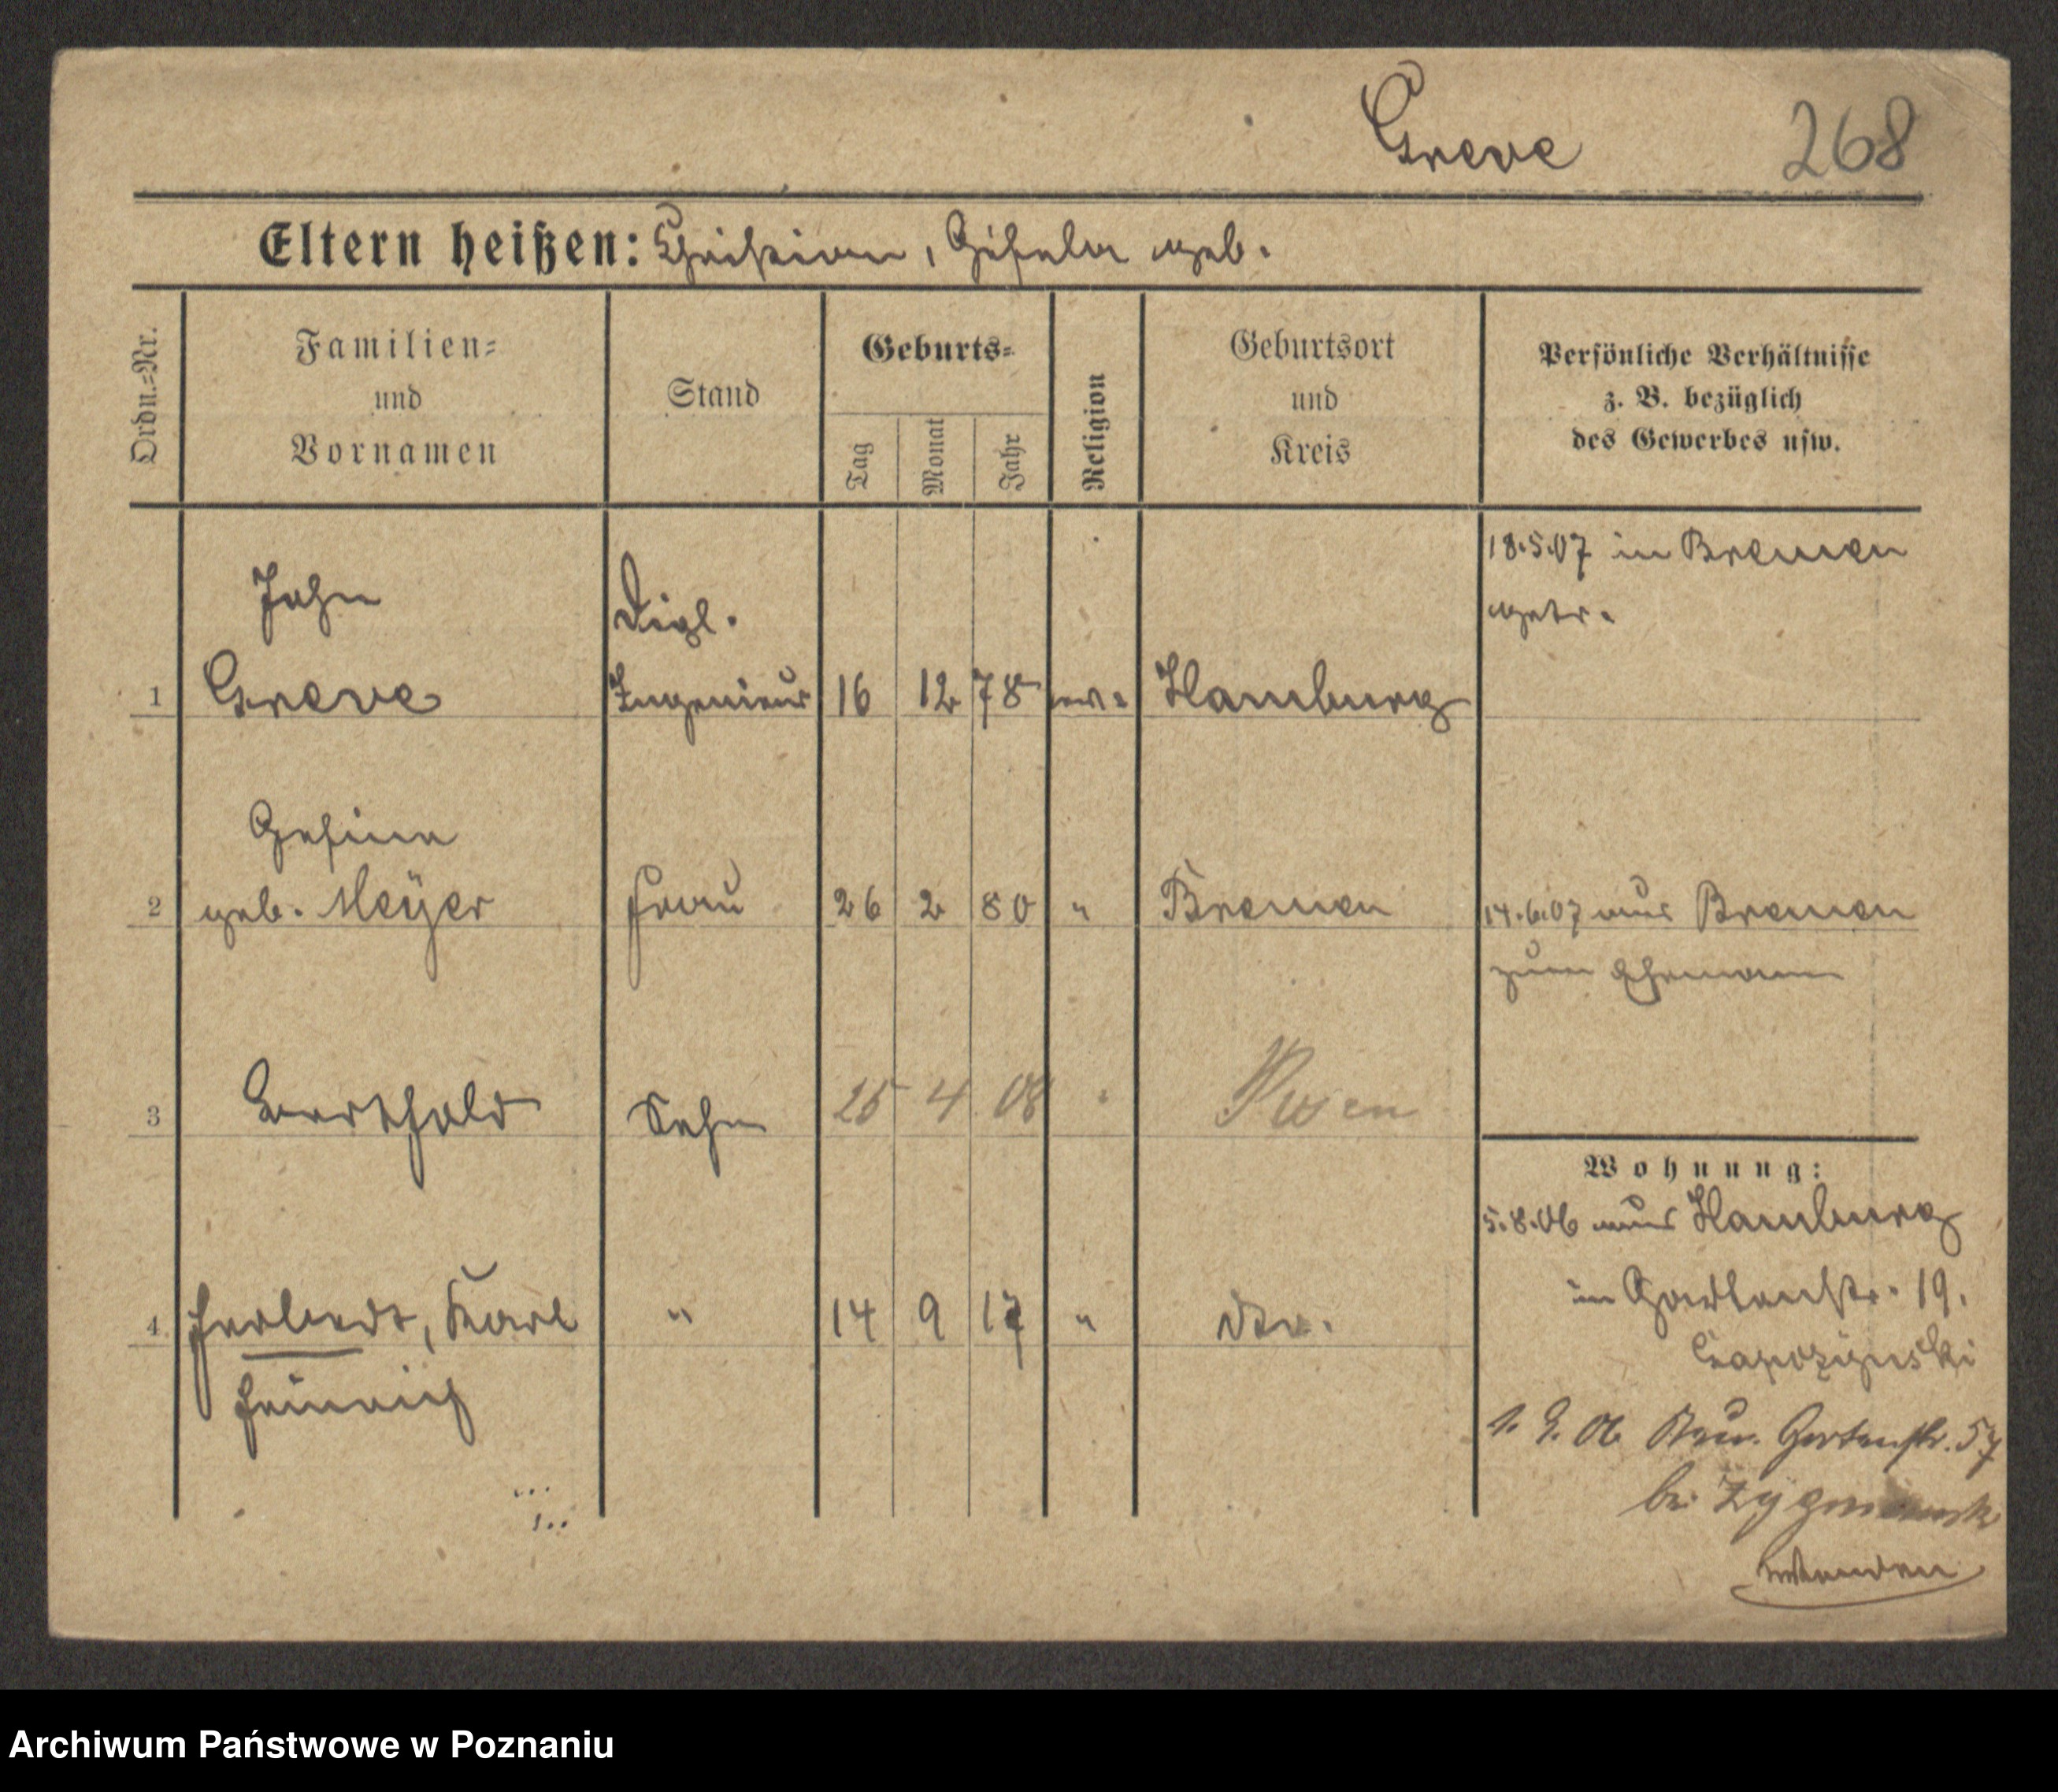 Greve 268
Eltern heißen: Christian, Gesela geb.
Ordn.-Nr.
Familien-
und
Vornamen
Stand
Geburts-
Tag
Monat
Jahr
Religion
Geburtsort
und
Kreis
Persönliche Verhältnisse
z. B. bezüglich
des Gewerbes usw.
John
Dipl.
18.5.07 in Bremen
getr.
1 Greve Ingenieur 16 12 78 ev. Hamburg
Gesine
2 geb. Meÿer Frau 26 2 80 " Bremen 14.6.07 aus Bremen
zum Ehemann
3 Berthold Sohn 25 4 08 " Posen
Wohnung:
5.8.06 aus Hamburg
in Gartenstr. 19.
4 Herbert, Karl " 14 9 17 " dto.
Heinrich
1.9.06 Gartenstr. 57
bei
Archiwum Państwowe w Poznaniu